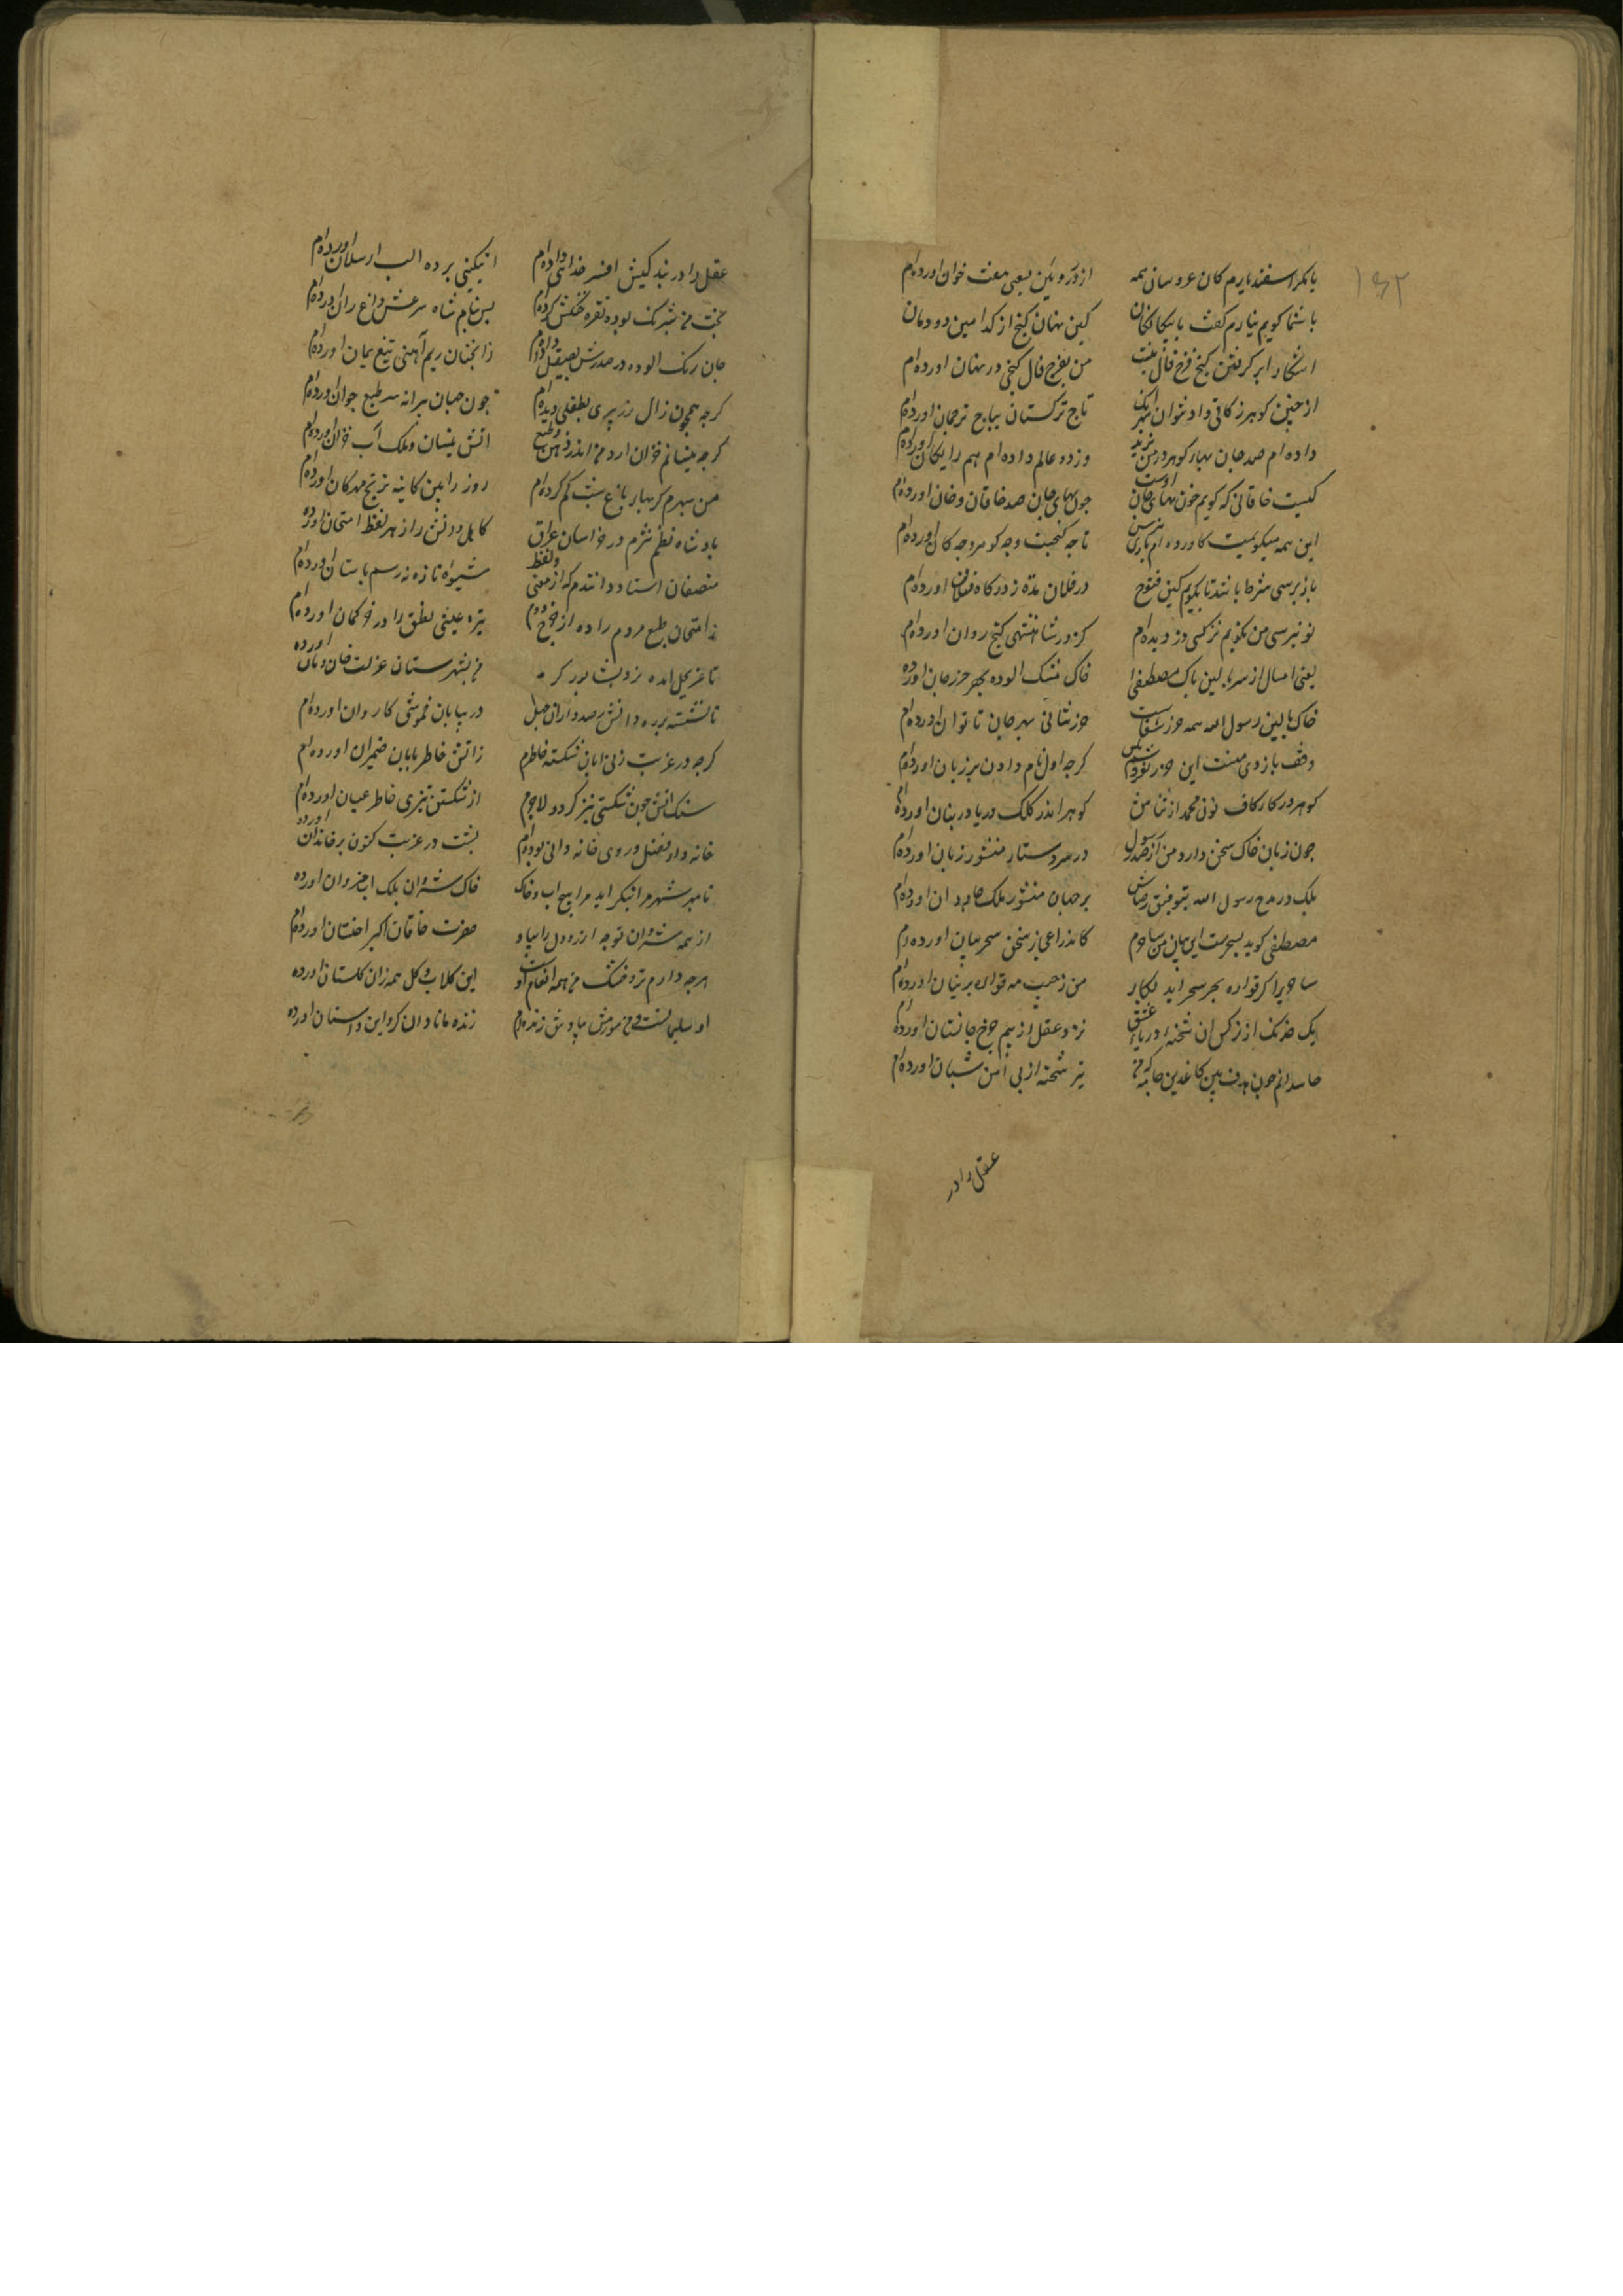 ۱۶۲
با کمر اسفندیارم کان عروسان همه از در رویین بسعی هفت خوان آورده‌ام
با شما کویم نیارم کفت با بیکانکان کین نهان کنج از کدامین دودمان
اشکارا بر کرفتن کنج فرخ فال نیست من بفرخ فال کنجی در نهان اورده‌ام
از چنین کوهر زکاتی داد نتوان تاج ترکستان بباج ترجمان اورده‌ام
داده‌ام صد جان بهاء کوهر در من یزید وز دو عالم داده‌ام هم رایکان اورده‌ام
کیست خاقانی که کویم خون بهای جان اوست چون بهای جان صد خاقان و خان اورده‌ام
این همه میکویمت کاورده‌ام باری بپرس تا چه کنجست و چه کوهر وز چه کان اورده‌ام
باز پرسی شرط باشد تا بکویم کین فتوح در فلان مدة ز درکاه فلان اورده‌ام
تو نپرسی من بکویم نز کسی دزدیده‌ام کز در شاهنشهی کنج روان اورده‌ام
یعنی امسال از سر بالین پاک مصطفی خاک مشک الوده بهر حرز جان اورده
خاک بالین رسول الله همه حرز شفاست حرز شافی بهر جان ناتوان اورده‌ام
وقف بازوی منست این حرز نفروشم بکس کرچه اول نام دادن بر زبان اورده‌ام
کوهر در کار کاف نونی محمد از ثناش کوهر اندر کلک و دریا در بنان اورده‌ام
چون زبان خاک سخن دارد من از صدر رسول در سر دستار منشور زبان اورده‌ام
بلک در مدح رسول الله بتوفیق رضاش بر جهان منشور ملک جاودان اورده‌ام
مصطفی کوید بسحرست این بیان من ساحرم کاندر اعجاز سخن سحر بیان اورده‌ام
ساحریرا کر قواره بهر سحر اید بکار من ز جیب مه قواره پرنیان اورده‌ام
یک خدنک از ترکش ان شحنه دریاء عشق نزد عقل از بیم چرخ جانستان اورده‌ام
حاسدانم چون هدف بین کاغذین جامه که من تیر شحنه از پی امن شبان اورده‌ام
عقل را در
عقل را در بندکیش افسر خدائی داده‌ام انیکینی برده الب ارسلان اورده‌ام
بخت من شبرنک بوده نقره خنکش کرده‌ام پس بنام شاه شرعش داغ ران اورده‌ام
جان زنک الوده در صدرش بصیقل داده‌ام زانچنان ریم آهنی تیغ یمان اورده‌ام
کرچه همچون زال زر پیری بطفلی دیده‌ام چون جهان پیرانه سر طبع جوان اورده‌ام
کرچه نیسانم خزان ارد من اندر ذهن و طبع اتش نیسان و ملک آب خزان اورده‌ام
من سپهرم کز بهار باغ شب کم کرده‌ام روز رایین کاینه ترنج مهرکان اورده‌ام
پادشاه نظم نثرم در خراسان عراق کاهل دانش را ز هر لفظ امتحان اورده
منصفان استاد دانندم که از معنی و لفظ شیوه تازه نه رسم باستان اورده‌ام
ز امتحان طبع مریم زاده از چرخ دوم تیر عیسی نطق را در خر کمان اورده‌ام
در بشهرستان عزلت خان و مان اورده
در بیابان خموشی کاروان اورده‌ام
کرچه در غربت ز بی ابان شکسته خاطرم ز اتش خاطر بابان ضمیران اورده‌ام
سنک اتش چون شکستی تیز کردد لاجرم از شکستن تیزی خاطر عیان اورده‌ام
خانه دار فضل و روی خاندانی بوده‌ام پشت در غربت کنون بر خاندان اورده
نا مرا شهر مرا ننکر اید مرا هیچ اب و خاک خاک شروان بلک اب خیروان اورده
از همه شروان توجه ارزو دل را بیاد حضرت خاقان اکبر اخستان اورده‌ام
هرچه دارم تر و خشک من همه انعام اوست این کلاب و کل همه زان کلستان اورده
او سلیمانست و من مورش بیادش زنده‌ام زنده ماناد ان کو این داستان اورده